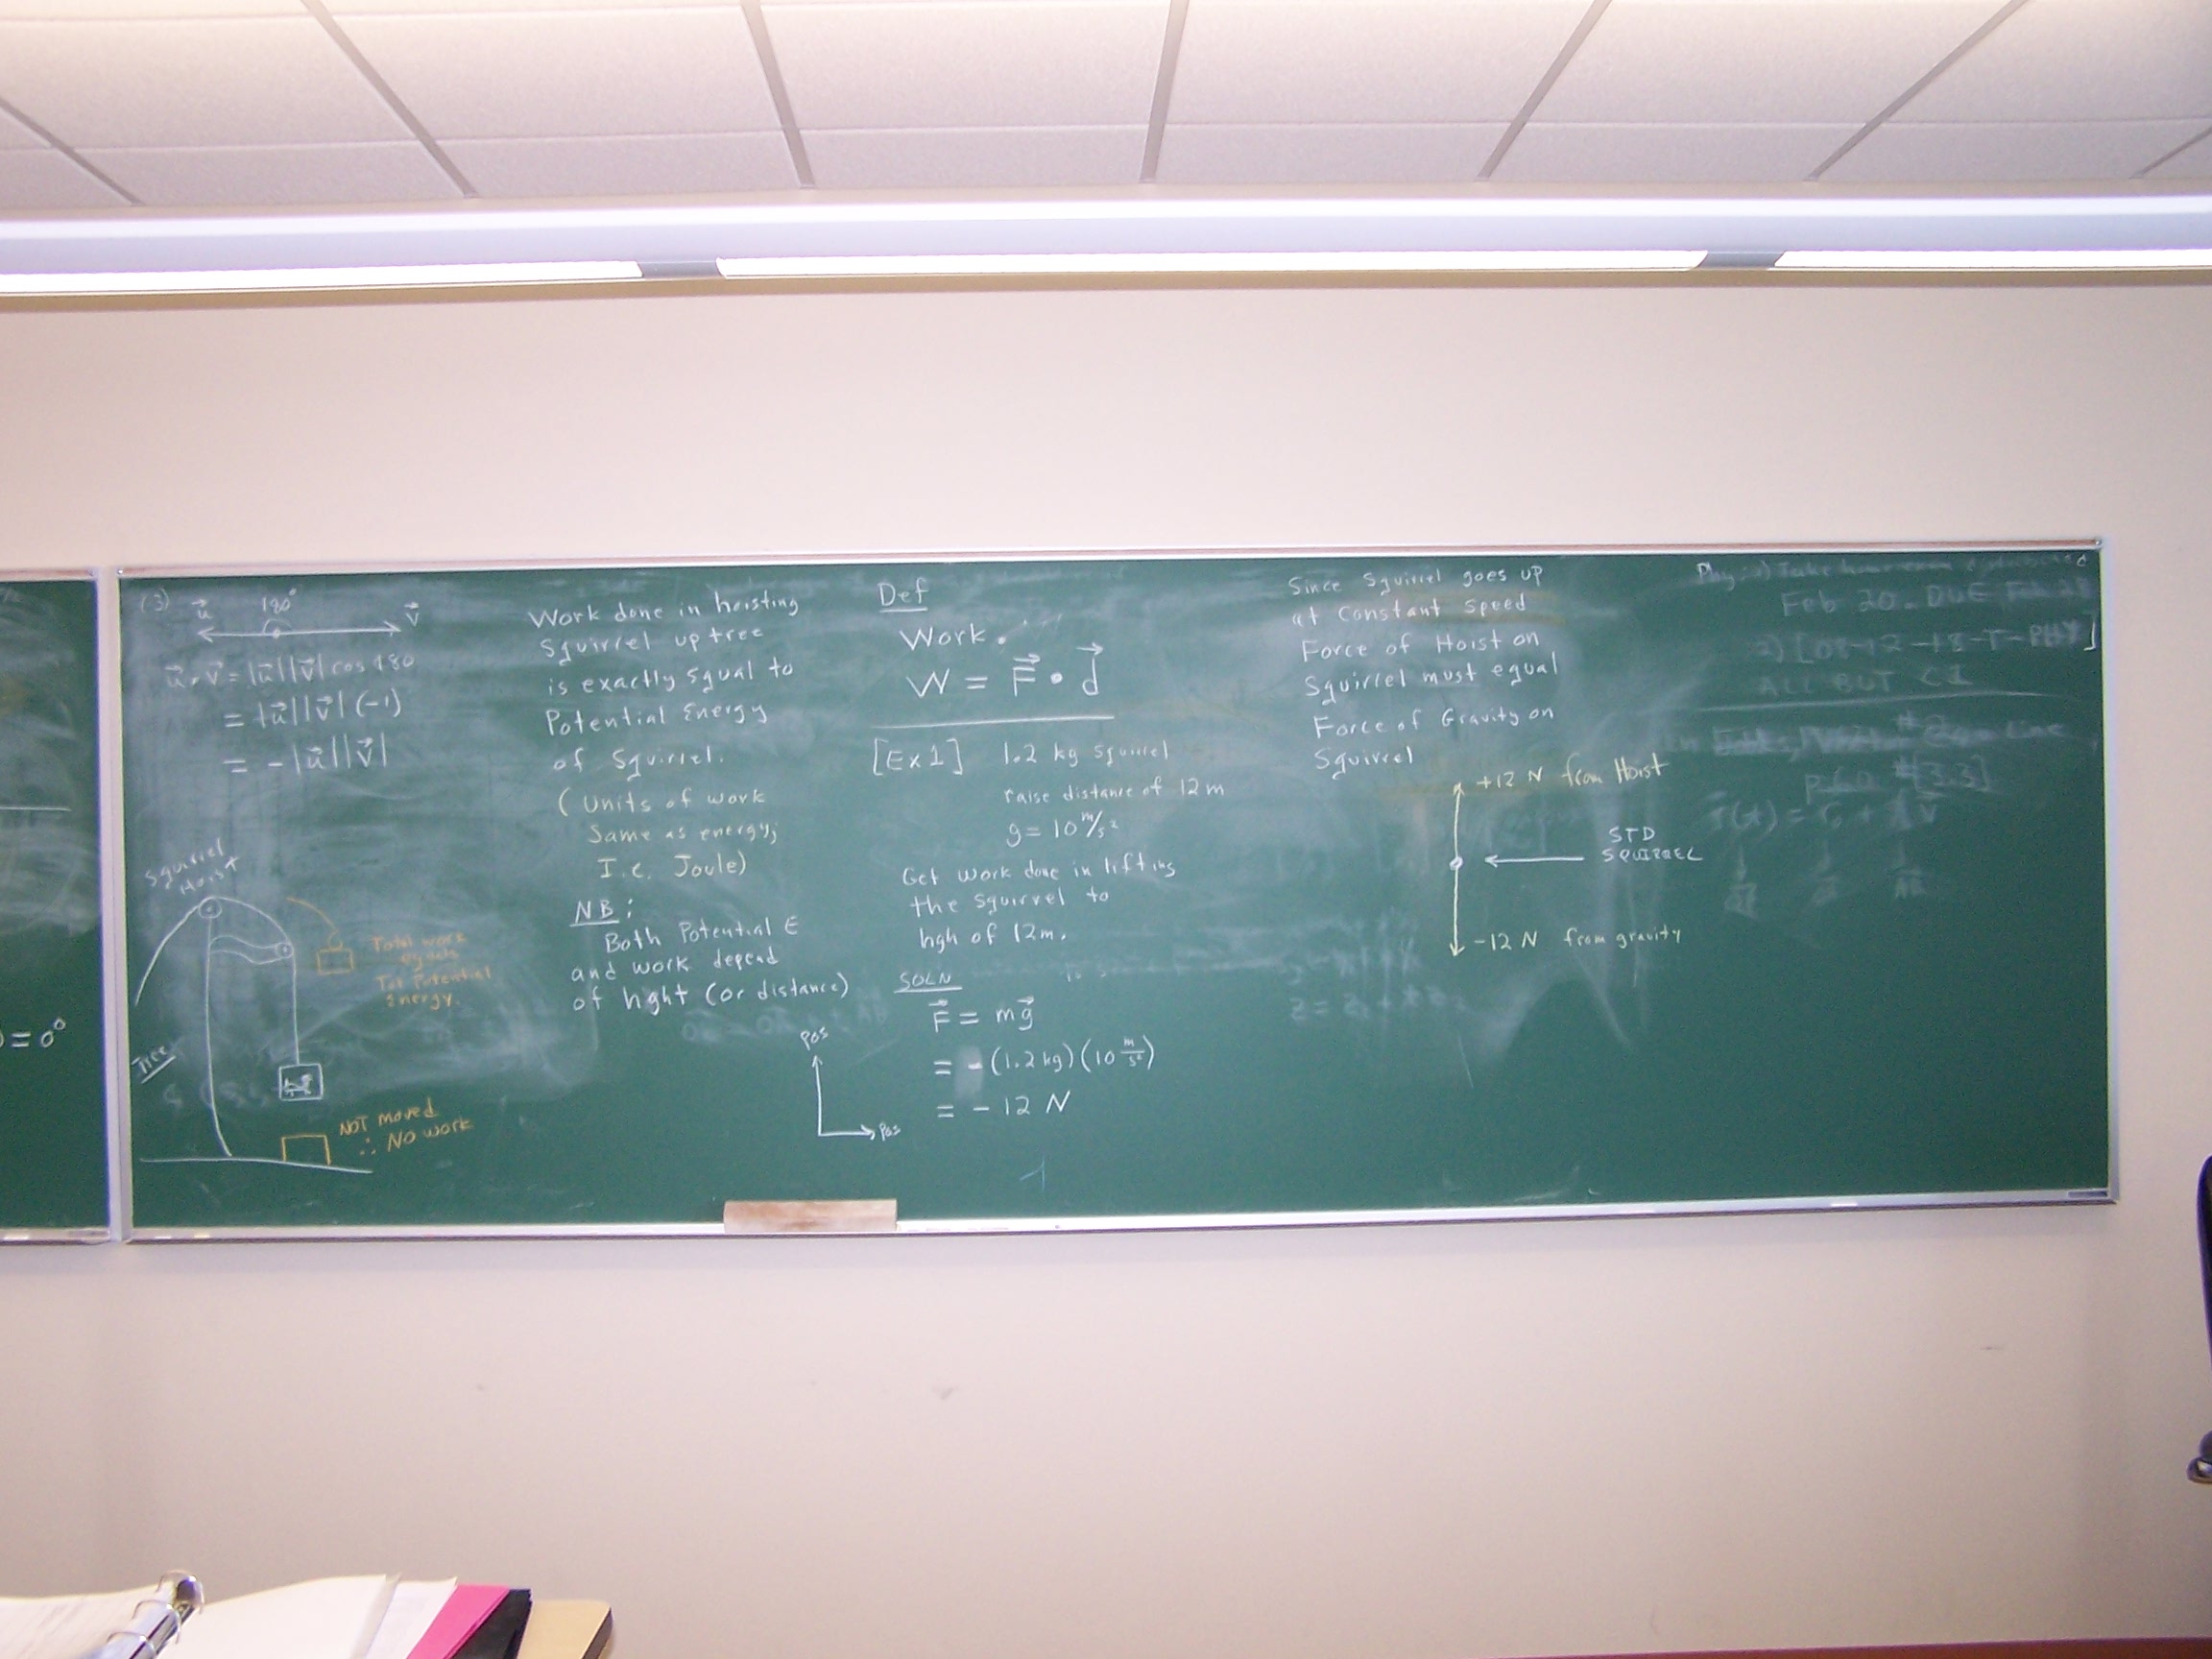 = 0°
(3)
u 180° v
u · v = |u||v| cos 180
= |u||v| (-1)
= -|u||v|
Squirrel
Hoist
Tree
Total work
equals
Tot Potential
Energy.
NOT moved
∴ No work
Work done in hoisting
Squirrel up tree
is exactly equal to
Potential Energy
of Squirrel.
(Units of work
Same as energy;
I.e. Joule)
NB:
Both Potential E
and work depend
of hight (or distance)
Pos
Pos
Def
Work.
W = F • d
[Ex 1] 1.2 kg squirrel
raise distance of 12 m
g = 10 m/s²
Get work done in lifting
the squirrel to
hgh of 12m.
SOLN
F = mg
= -(1.2 kg)(10 m/s²)
= - 12 N
Since Squirrel goes up
at Constant speed
Force of Hoist on
Squirrel must equal
Force of Gravity on
Squirrel
+12 N from Hoist
STD
SQUIRREL
-12 N from gravity
Feb 20. DUE Feb
2) [08-12-18-T-PHY]
ALL BUT C1